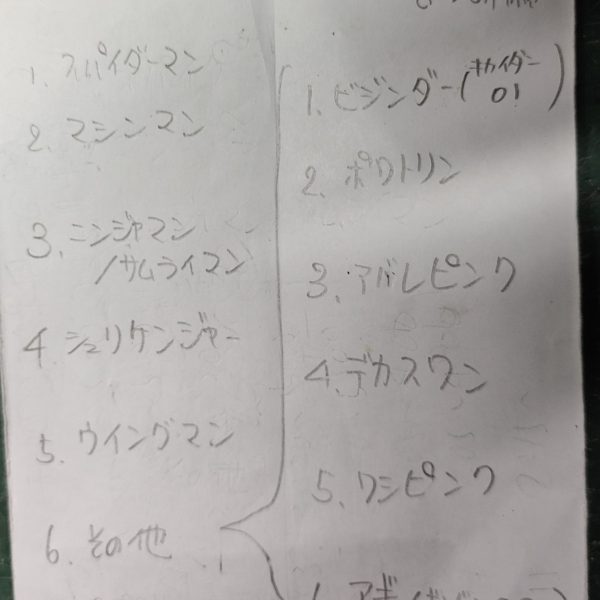 1. スパイダーマン
2. マシンマン
3. ニンジャマン
/サムライマン
4 シュリケンジャー
5. ウイングマン
6. その他
1. ビジンダー(キカイダー
01)
2. ポワトリン
3. アバレピンク
4. デカスワン
5. ワシピンク